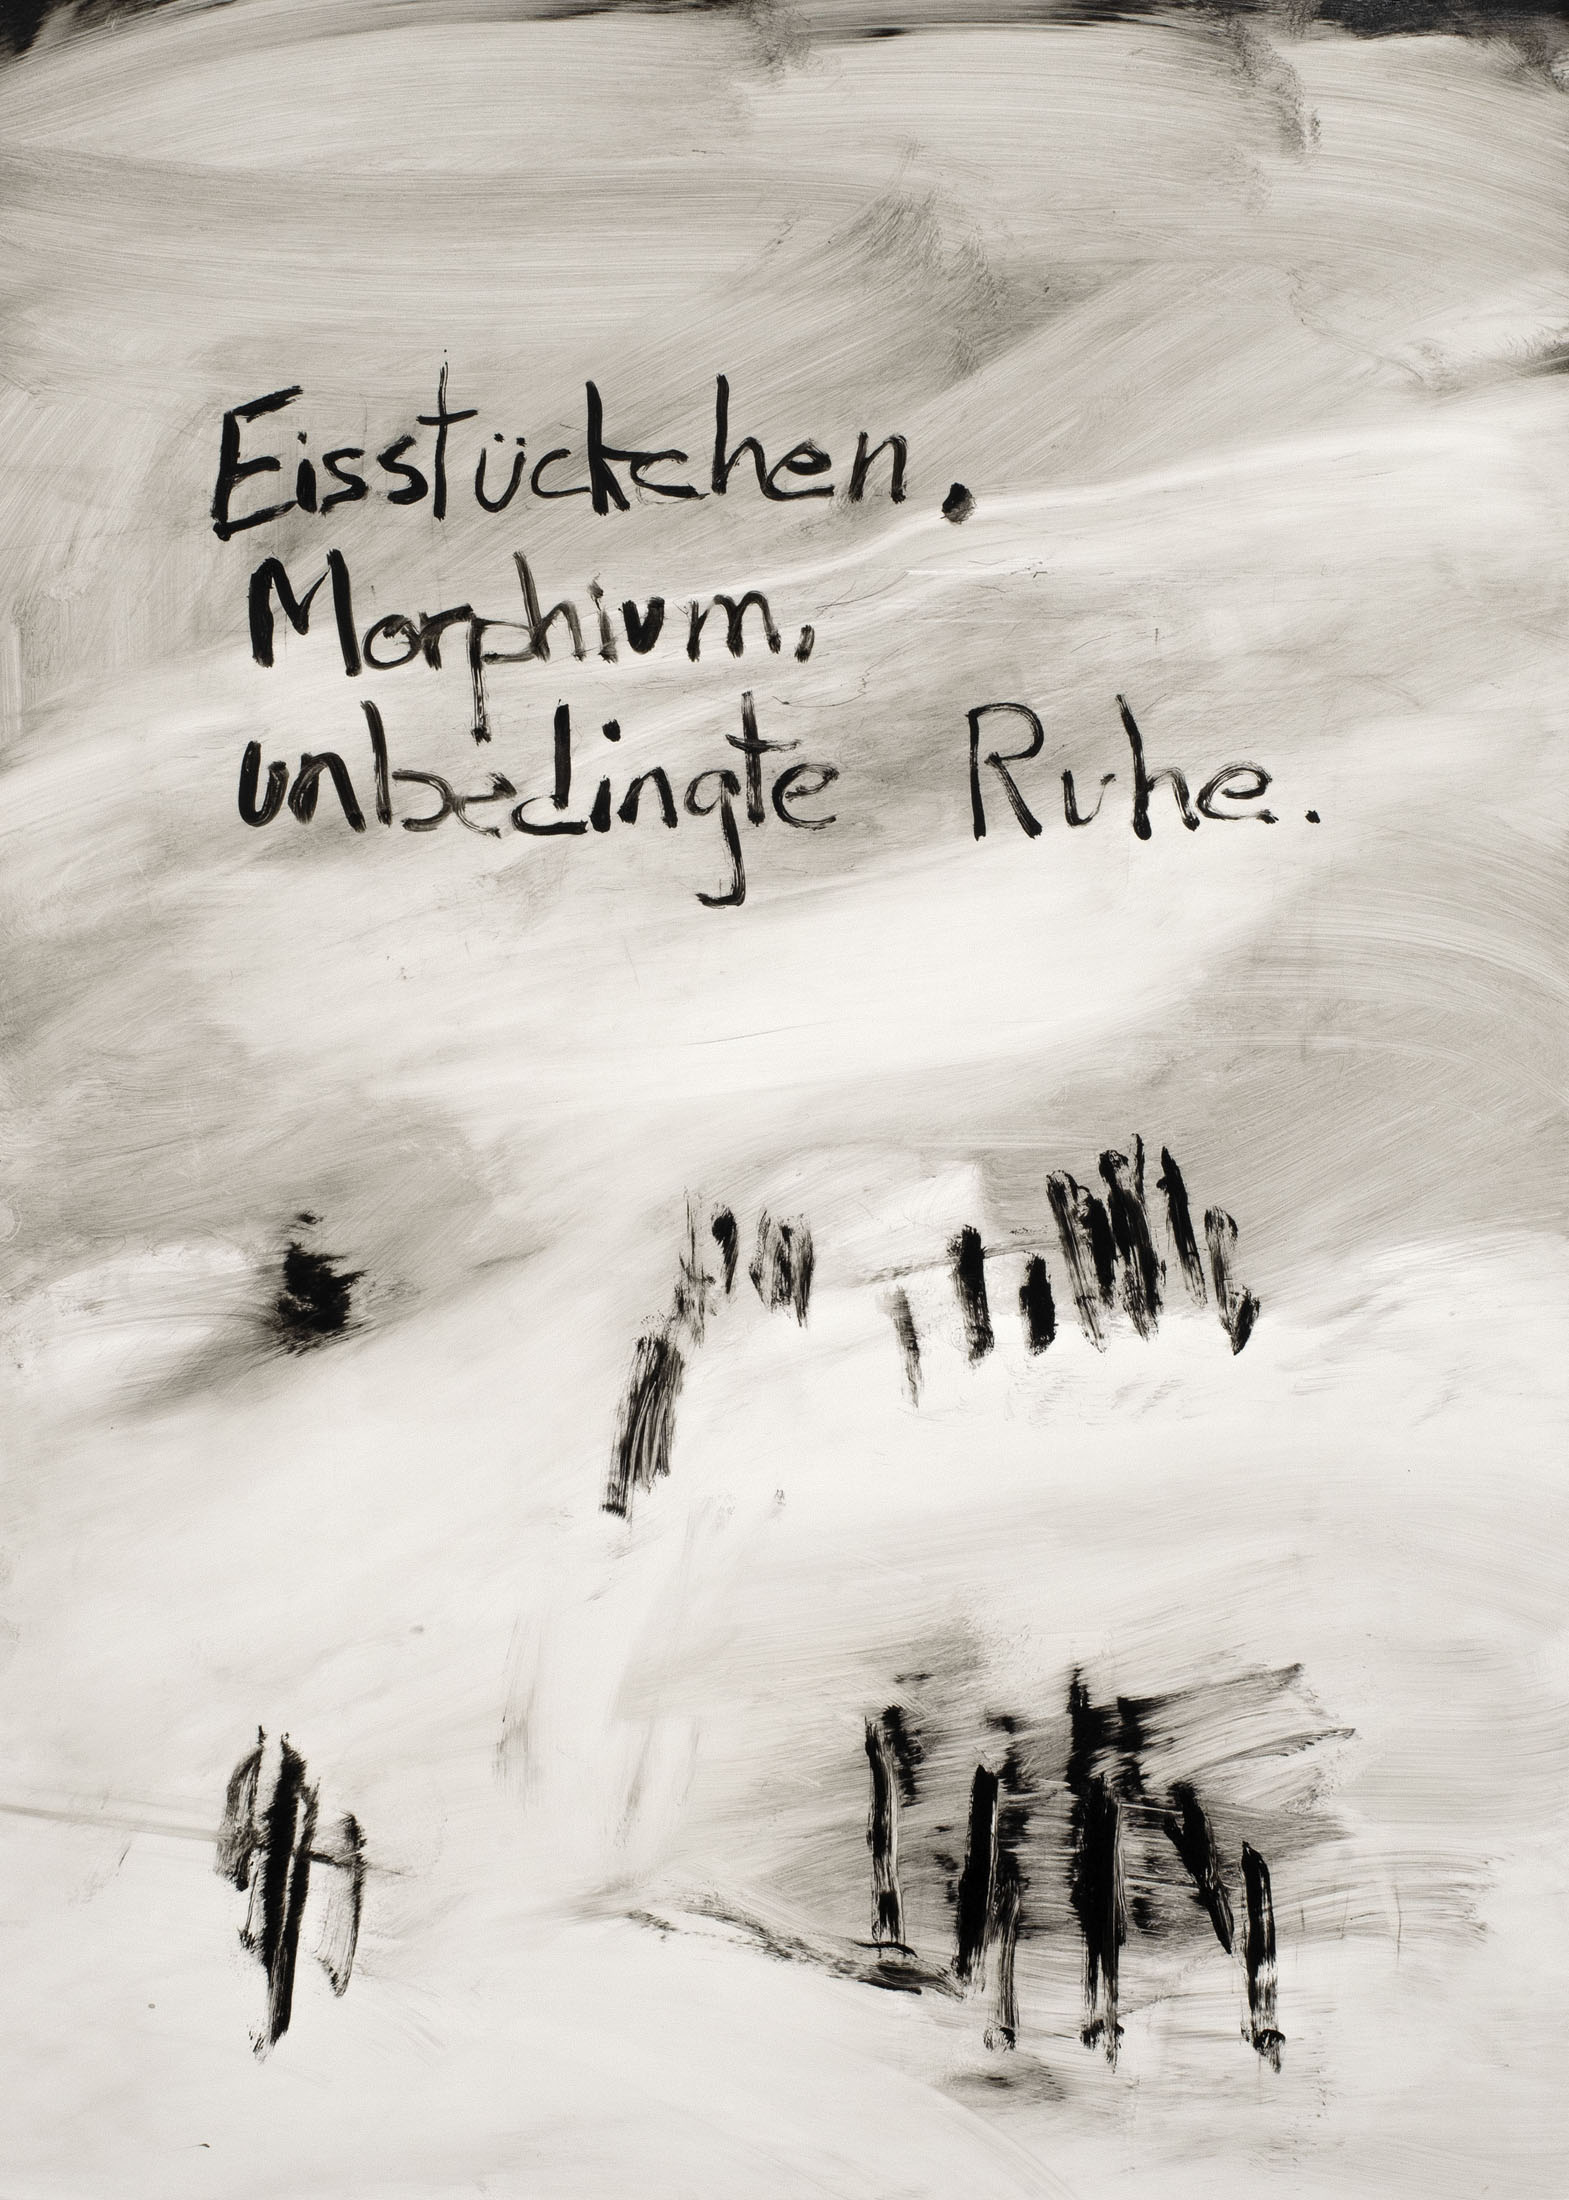 Eisstückchen.
Morphium,
unbedingte Ruhe.